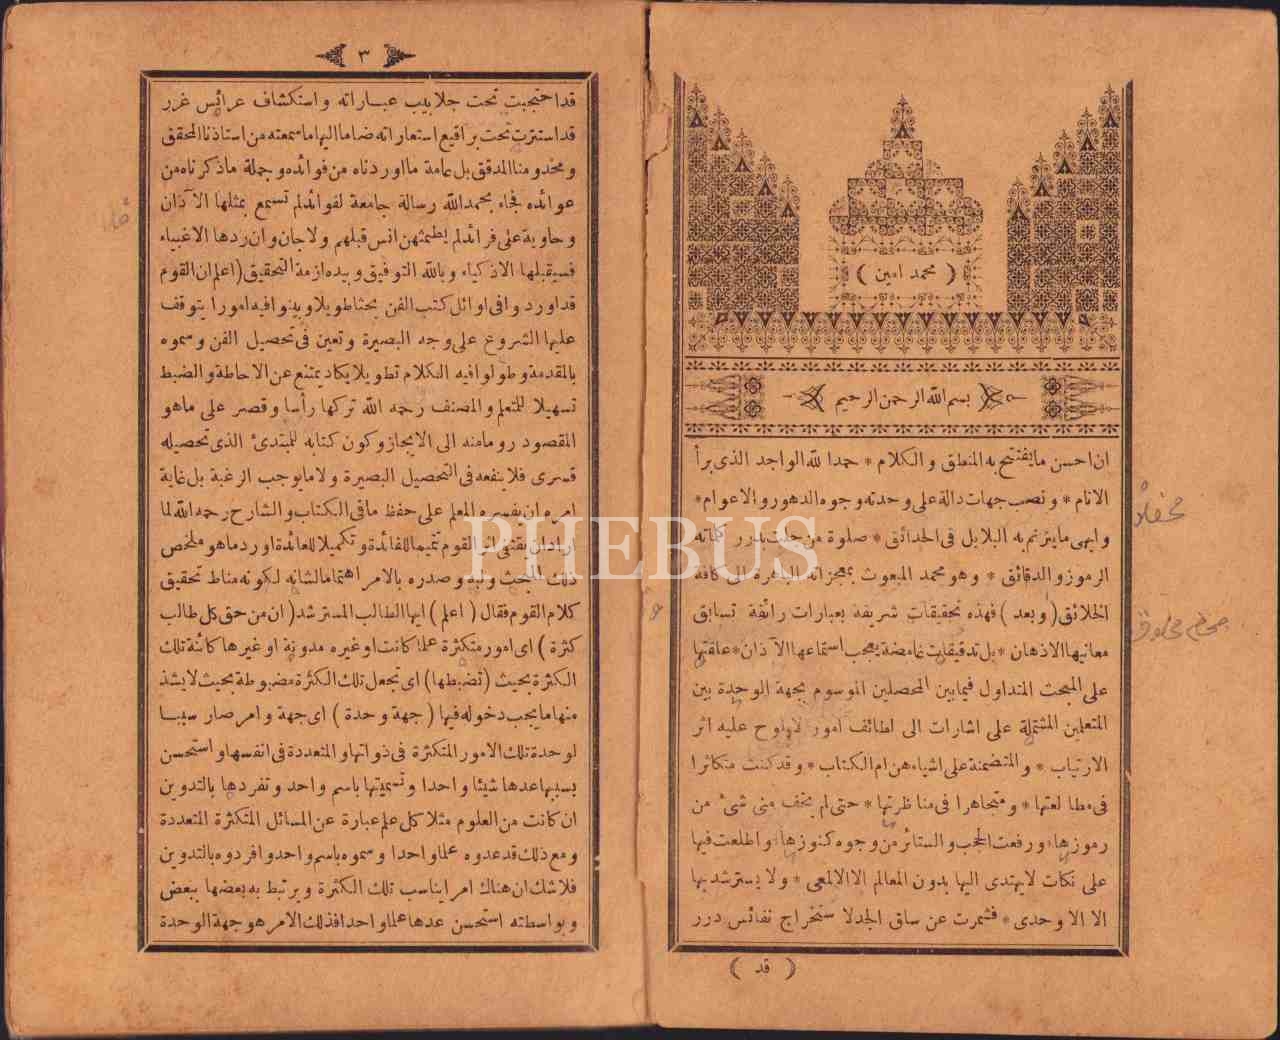 ( محمد امين )
بسم الله الرحمن الرحيم
ان احسن ما يفتتح به المنطق والكلام * حمدا لله الواجد الذى برأ
الانام * ونصب جهات دالة على وحدته وجوه الدهور والاعوام *
وابهى ما يترنم به البلابل فى الحدائق * صلوة من حلت بدرر كلماته
الرموز والدقائق * وهو محمد المبعوث بمعجزاته الباهرة الى كافة
الخلائق ( وبعد ) فهذه تحقيقات شريفة بعبارات رائقة تسابق
معانيها الاذهان * بل تدقيقات غامضة يعجب استماعها الآذان * علقتها
على المبحث المتداول فيما بين المحصلين الموسوم بجهة الوحدة بين
المتعلمين المشتملة على اشارات الى لطائف امور لايلوح عليه اثر
الارتياب * والمتضمنة على اشياء هن ام الكتاب * وقد كنت متكاثرا
فى مطالعتها * ومتجاهرا فى مناظرتها * حتى لم يخف منى شئ من
رموزها ورفعت الحجب والستائر من وجوه كنوزها واطلعت فيها
على نكات لايهتدى اليها بدون المعالم الا الالمعى * ولا يسترشد بها
الا الاوحدى * فشمرت عن ساق الجد لاستخراج نفائس درر
( قد )
٣
قد احتجبت تحت جلابيب عباراته واستكشاف عرائس غرر
قد استترت تحت براقيع استعاراته ضاما اليها ما سمعته من استاذنا المحقق
ومخدومنا المدقق بل عامة ما اوردناه من فوائده وجملة ما ذكرناه من
عوائده فجاء بحمد الله رسالة جامعة لفوائد لم تسمع بمثلها الآذان
وحاوية على فرائد لم يطمثهن انس قبلهم ولا جان وان ردها الاغبياء
فسيقبلها الاذكياء وبالله التوفيق وبيده ازمة التحقيق ( اعلم ان القوم
قد اوردوا فى اوائل كتب الفن بحثا طويلا وبينوا فيه امورا يتوقف
عليها الشروع على وجه البصيرة وتعين فى تحصيل الفن وسموه
بالمقدمة وطولوا فيه الكلام تطويلا يكاد يمتنع عن الاحاطة والضبط
تسهيلا للمتعلم والمصنف رحمه الله تركها رأسا وقصر على ما هو
المقصود روما منه الى الايجاز وكون كتابه للمبتدئ الذى تحصيله
قسرى فلا ينفعه فى التحصيل البصيرة ولا ما يوجب الرغبة بل غاية
امره ان يفسره المعلم على حفظ ما فى الكتاب والشارح رحمه الله لما
اراد ان يقتفى اثر القوم تتميما للفائدة وتكميلا للعائدة اورد ما هو ملخص
ذلك المبحث ولبه وصدره بالامر اهتماما لشانه لكونه مناط تحقيق
كلام القوم فقال ( اعلم ) ايها الطالب المسترشد ( ان من حق كل طالب
كثرة ) اى امور متكثرة علما كانت او غيره مدونة او غيرها كائنة تلك
الكثرة بحيث ( تضبطها ) اى تجعل تلك الكثرة مضبوطة بحيث لايشذ
منها ما يجب دخوله فيها ( جهة وحدة ) اى جهة وامر صار سببا
لوحدة تلك الامور المتكثرة فى ذواتها والمتعددة فى انفسها واستحسن
بسببها عدها شيئا واحدا وتسميتها باسم واحد وتفردها بالتدوين
ان كانت من العلوم مثلا كل علم عبارة عن المسائل المتكثرة المتعددة
ومع ذلك قد عدوه علما واحدا وسموه باسم واحد وافردوه بالتدوين
فلا شك ان هناك امرا يناسب تلك الكثرة ويرتبط به بعضها ببعض
وبواسطته استحسن عدها علما واحدا فذلك الامر هو جهة الوحدة
PHEBUS